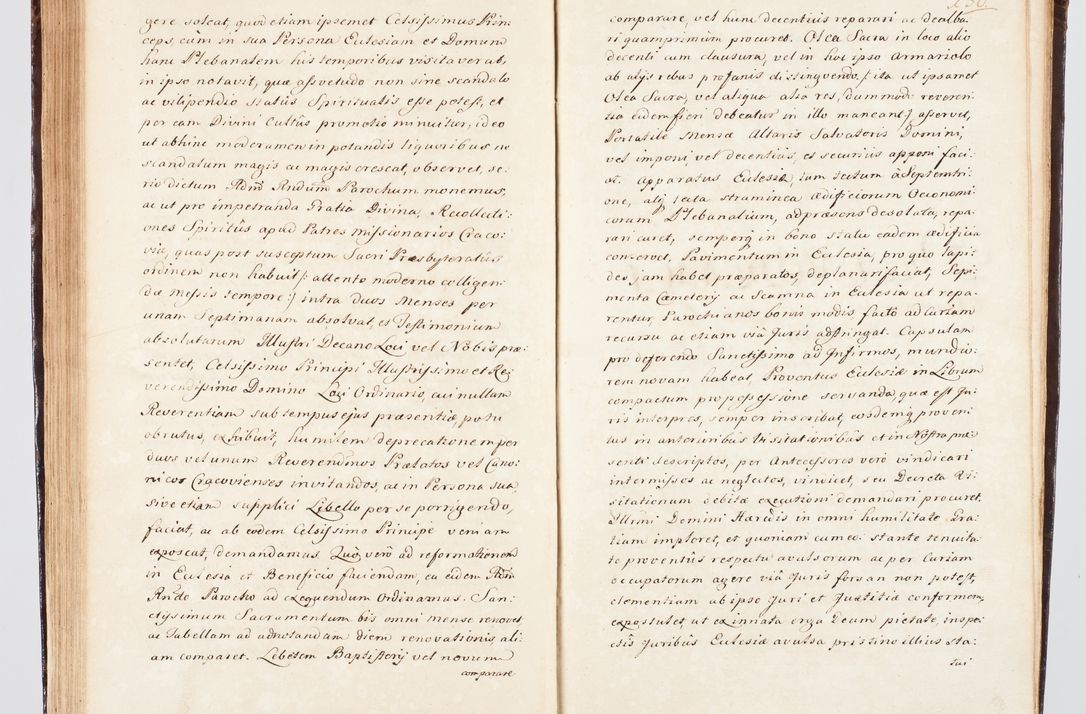 gere soleat, quod etiam ipsemet Celsissimus Prin:
ceps, cum in sua Persona Ecclesiam et Domum
hanc Plebanalem his temporibus visitaverat,
in ipso notavit, quæ assvetudo non sine scandalo
ac vilipendio statûs Spiritualis esse potest, et
per eam Divini Cultûs promotio minuitur, ideo
ut abhinc moderamen in potandis liquoribus ne
scandalum magis ac magis crescat, observet, se:
rio dictum Adm̃ Rndum̃ Parochum monemus,
ac ut pro impetranda Gratia Divina, Recollecti:
ones Spiritûs apud Patres missionarios Craco:
viæ, quas post susceptum Sacri Præsbyteratûs
ordinem non habuit /: attento moderno colligen:
dæ messis tempore :/ intra duos Menses per
unam Septimanam absolvat, et Testimonium
absolutarum Illustri Decano Loci vel Nobis præ:
sentet, Celsissimo Principi Illustrissimo et Re:
verendissimo Domino Loci Ordinario, cui nullam
Reverentiam sub tempus ejus præsentiæ, potu
obrutus, exhibuit, humilem deprecationem per
duos vel unum Reverendmos Prælatos vel Cano:
nicos Cracovienses invitandos, ac in Persona sua,
sive etiam supplici Libello per se porrigendo,
faciat, ac ab eodem Celsissimo Principe veniam
exposcat, demandamus. Quò verò ad reformationem
in Ecclesia et Beneficio faciendam, ea eidem Adm̃
Rndo Parocho ad exequendum Ordinamus. San:
ctissimum Sacramentum bis omni mense renovet,
ac Tabellam ad adnotandam diem renovationis ali:
am comparet. Lebetem Baptisterÿ vel novum
comparare
comparare, vel hunc decentius reparari ac dealba:
ri quamprimum procuret. Olea Sacra in loco alio
decenti cum clausura, vel in hoc ipso Armariolo
ab alÿs rebus profanis distinguendo, /: ita ut ipsamet
Olea Sacra, vel aliqua alia res, dummodo reveren:
tia eidem fieri debeatur in illo maneant :/ asservet,
Portatile Mensæ Altaris Salvatoris Domini,
vel imponi vel decentius, et securius apponi faci:
at. Apparatus Ecclesiæ, tam tectum à Septemtri:
one, alÿ tecta straminea ædificiorum Oeconomi:
corum Plebanalium, ad præsens desolata, repa:
rari curet, semperq̃ in bono statu eadem ædificia
conservet, Pavimentum in Ecclesia, pro quo lapi:
des jam habet præparatos, deplanari faciat, Sepi:
menta Cæmeterÿ ac Scamna in Ecclesia ut repa:
rentur, Parochianos bonis modis factô ad Curiam
recursu ac etiam viâ Juris adstringat. Capsulam
pro deferendo Sanctissimo ad Infirmos, mundio:
rem novam habeat, Proventus Ecclesiæ in Librum
compactum pro possessione servanda, quæ est Ju:
ris interpres, semper inscribat, eosdemq̃ proven:
tus in anterioribus Visitationibus et in Nostra præ:
senti descriptos, per Antecessores verò vindicari
intermissos ac neglectos, vindicet, seu Decreta Vi:
sitationum debitæ executioni demandari procuret.
Illmi Domini Hæredis in omni humilitate Gra:
tiam imploret, et quoniam cum eo stante tenuita:
te proventûs respectu avulsorum ac per Curiam
occupatorum agere viâ Juris forsan non potest,
clementiam ab ipso Juri et Justitiæ conformem,
expostulet, ut ex innata erga Deum pietate, inspe:
ctis Juribus Ecclesiæ avulsa pristino illius sta:
tui